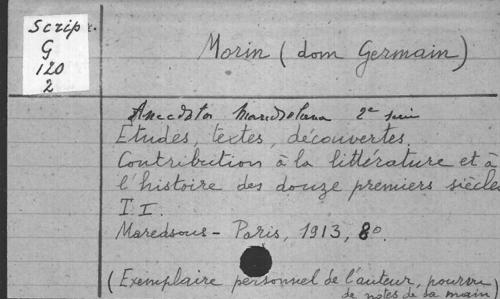 Scrip
G
120
2
Morin (dom Germain)
Anecdota Maredsolana 2e
Etudes, textes, découvertes.
Contribution à la littérature et à
l'histoire des douze premiers siècles
T I.
Maredsous - Paris, 1913, 8º.
(Exemplaire personnel de l'auteur, pourvu
de notes de sa main)